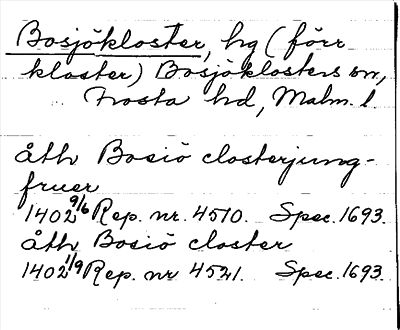 Bosjökloster, hg (förr
kloster) Bosjöklosters sn,
Frosta hd, Malm. l
åth Bosiö closterjung-
fruer
1402 9/6 Rep. nr. 4510. Spec. 1693.
åth Bosiö closter
1402 11/9 Rep. nr 4541. Spec. 1693